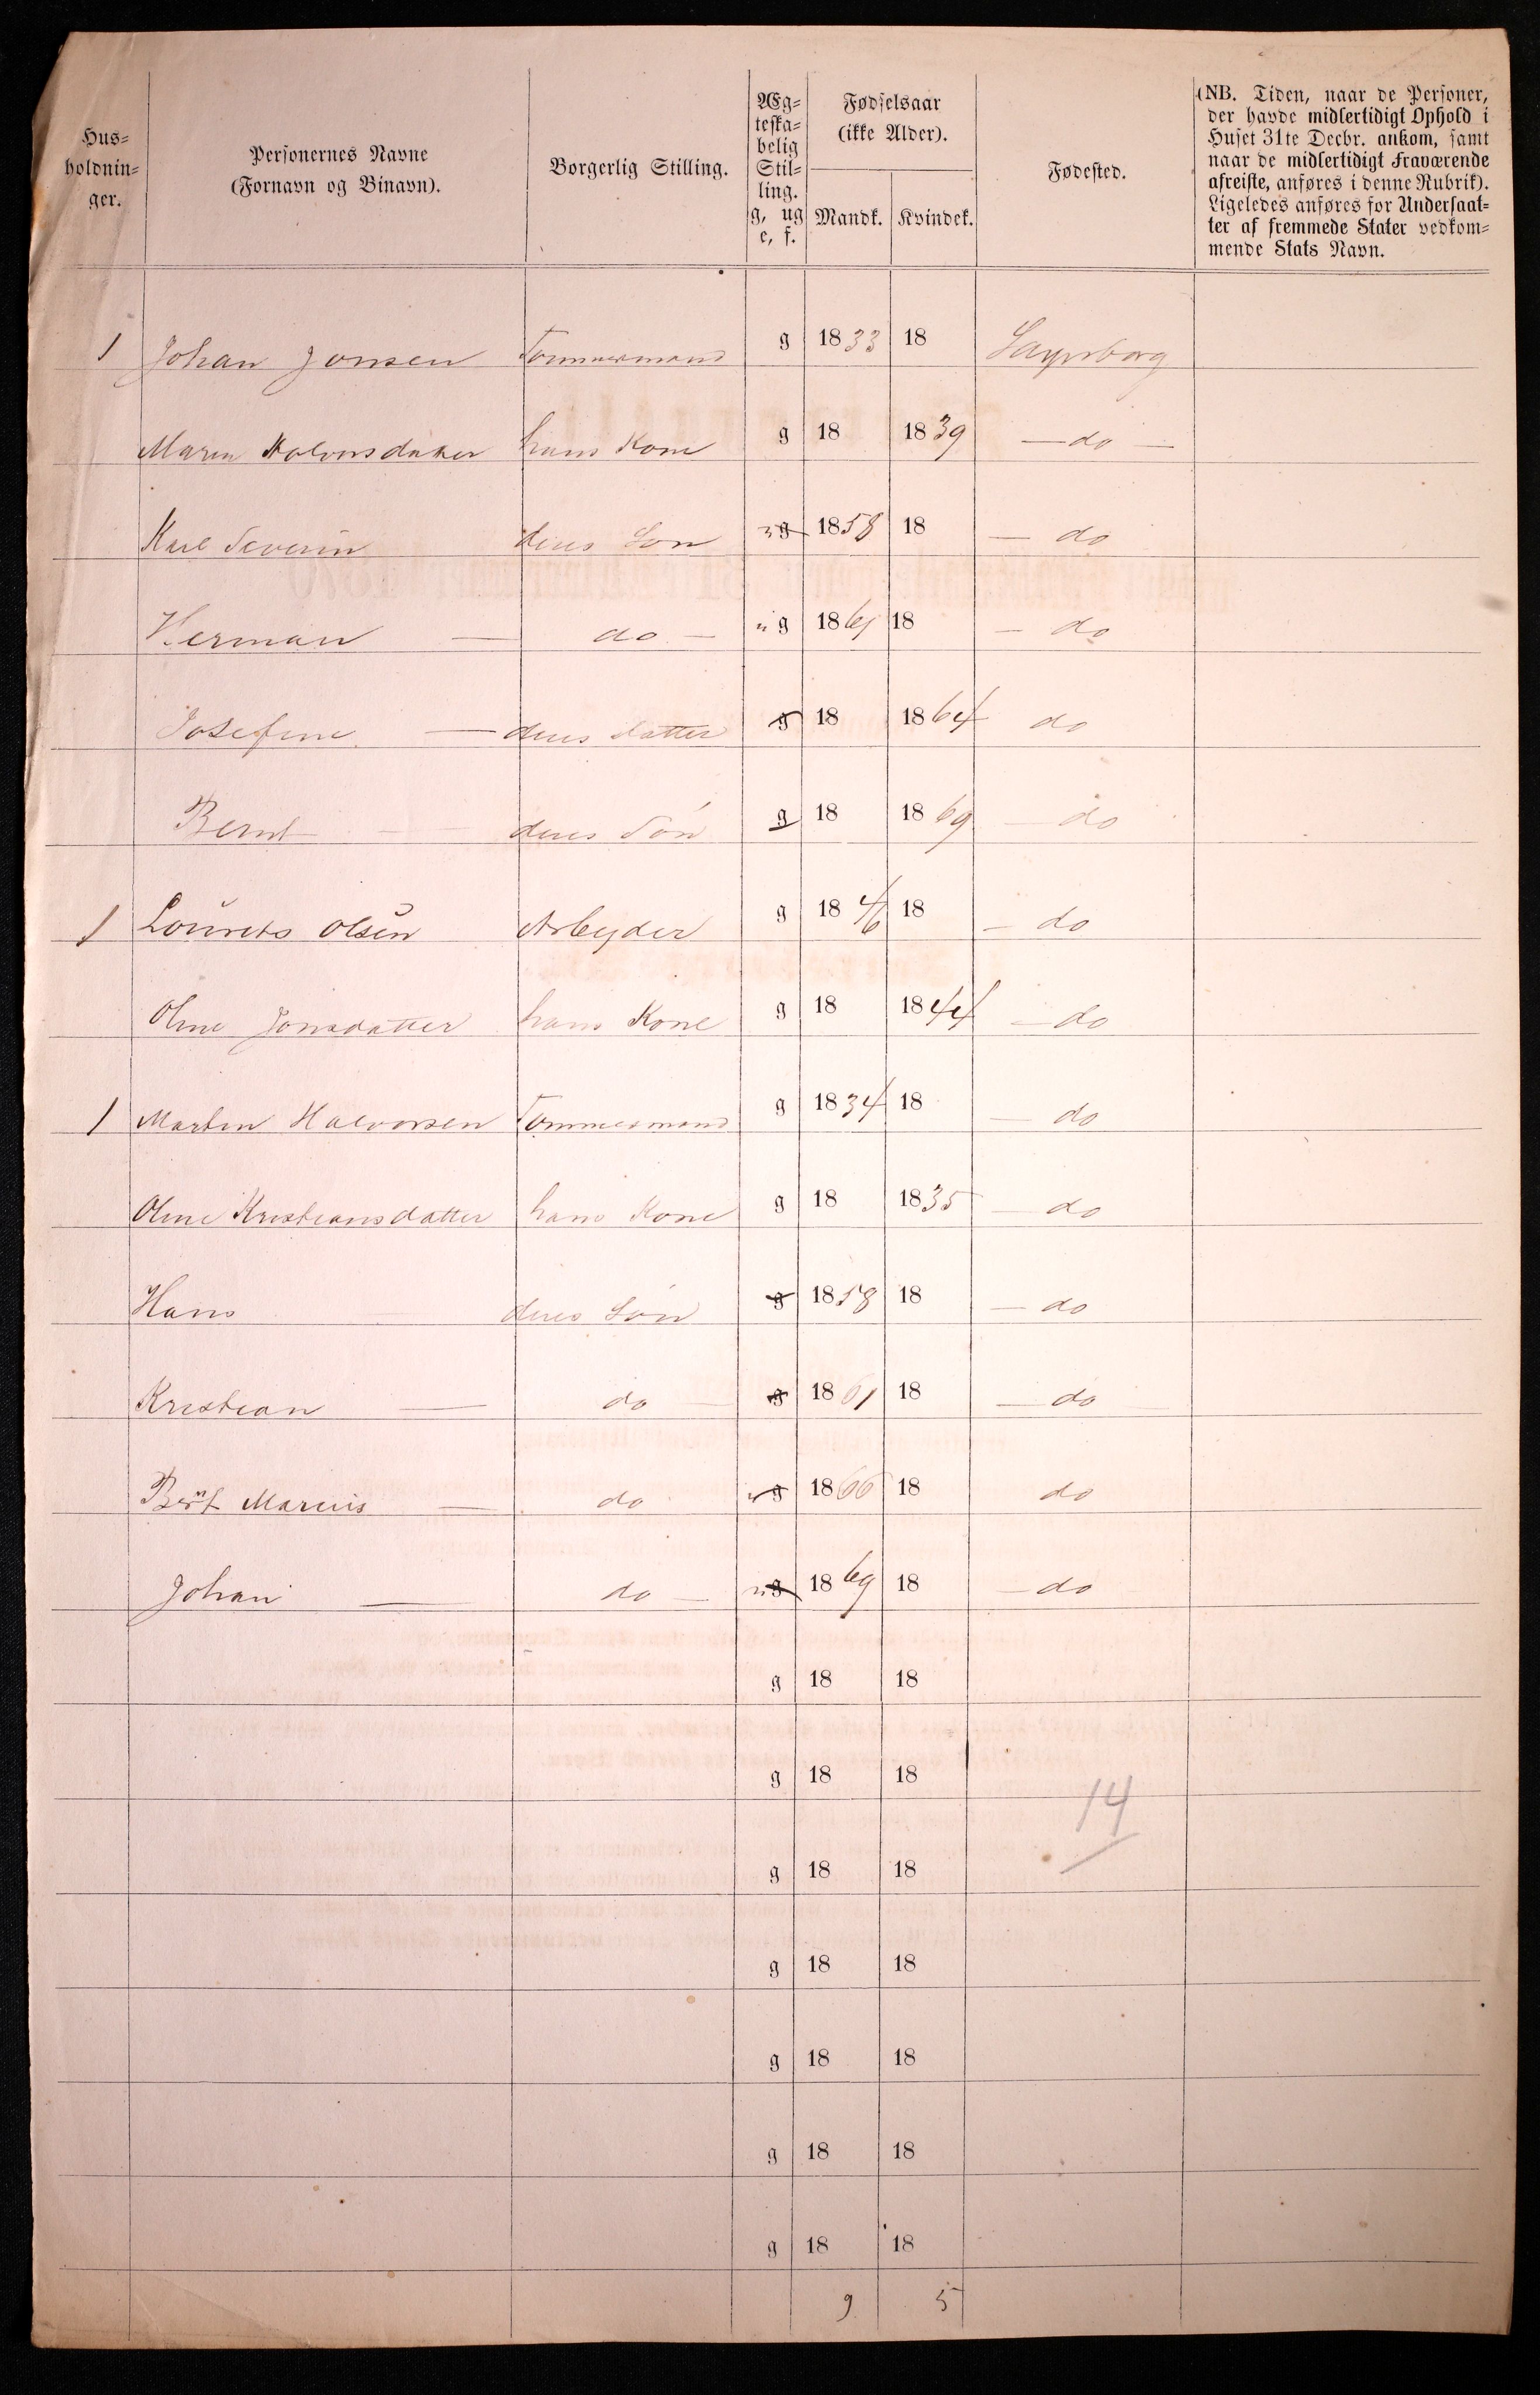 Hus-
holdnin-
ger.
Personernes Navne
(Fornavn og Binavn).
Borgerlig Stilling.
Æg-
teska-
belig
Stil-
ling.
g, ug
e, f.
Fødselsaar
(ikke Alder).
Mandk.
Kvindek.
Fødested.
(NB. Tiden, naar de Personer,
der havde midlertidigt Ophold i
Huset 31te Decbr. ankom, samt
naar de midlertidigt Fraværende
afreiste, anføres i denne Rubrik).
Ligeledes anføres for Undersaat-
ter af fremmede Stater vedkom-
mende Stats Navn.
1 Johan Jonsen Tømmermand g 1833 18
Maren hans Kone g 18 1839 — do —
Karl Severin deres Søn ug 1858 18 — do
Herman — do — ug 18 18 — do
Josefine — deres datter g 18 1864 do
Bernt — deres Søn g 18 1869 — do
1 Lourets Olsen Arbeyder g 1846 18 — do
Oline Jonsdatter hans Kone g 18 1844 — do
1 Martin Halvorsen Tømmermand g 1834 18 — do
Oline Kristiansdatter hans Kone g 18 1835 — do
Hans — deres Søn g 1858 18 — do
Kristian — do g 1861 18 — do
Marius — do ug 1866 18 do
Johan — do — ug 1869 18 — do
g 18 18
g 18 18
14
g 18 18
g 18 18
g 18 18
g 18 18
g 18 18
9 5